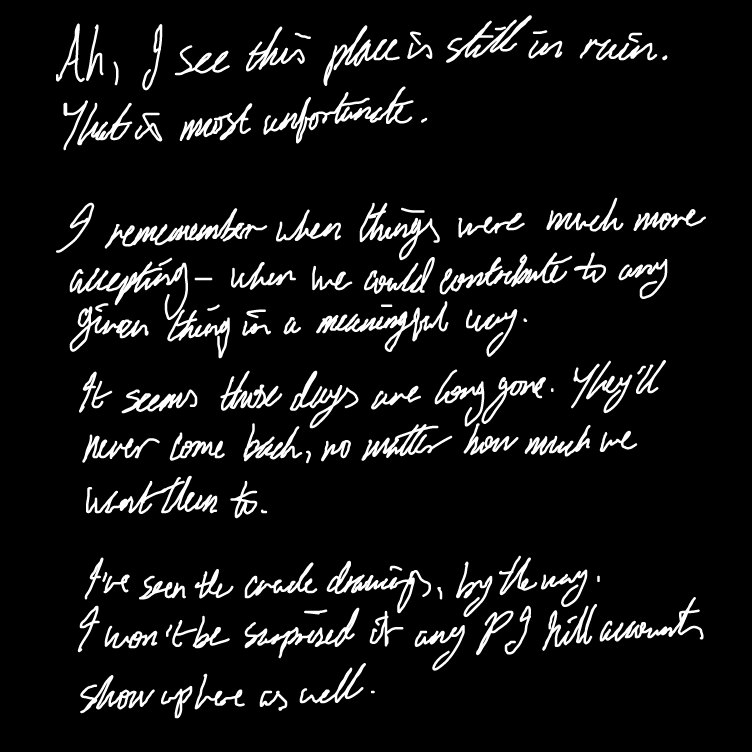 Ah, I see this place is still in ruin.
That is most unfortunate.
I rememember when things were much more
accepting – when we could contribute to any
given thing in a meaningful way.
It seems those days are long gone. They'll
never come back, no matter how much we
want them to.
I've seen the crude drawings, by the way.
I won't be surprised if any PJ hill accounts
show up here as well.